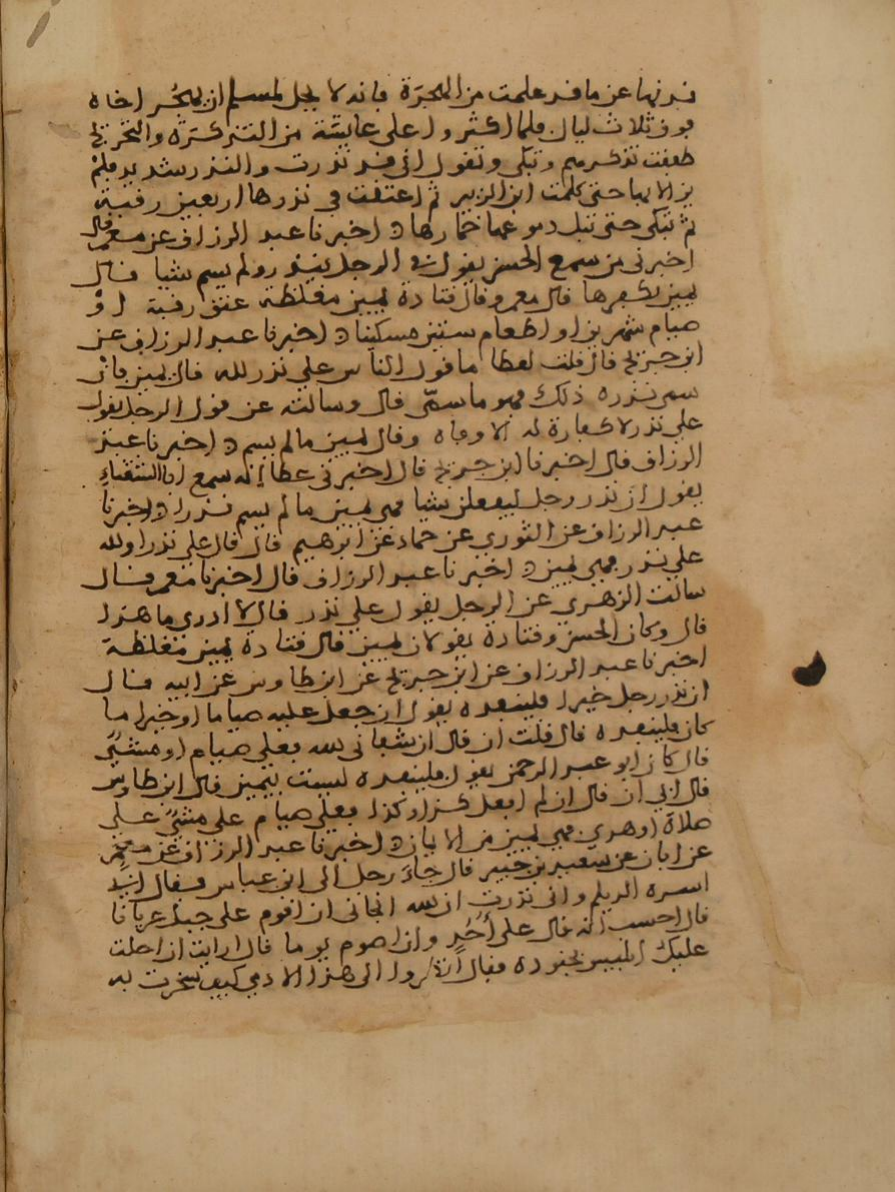 قد نهى عن ما قد علمت من الهجرة فانه لا يحل لمسلم ان يهجر اخاه
فوق ثلاث ليال فلما اكثروا على عايشة من التذكرة والتحريج
طفقت تذكرهم وتبكي وتقول اني قد نذرت والنذر شديد فلم
يزالا بها حتى كلمت ابن الزبير ثم اعتقت في نذرها اربعين رقبة
ثم تبكي حتى تبل دموعها خمارها اخبرنا عبد الرزاق عن معمر قال
اخبرني من سمع الحسن يقول في الرجل ينذر ولم يسم شيا قال
يمين يكفرها قال معمر وقال قتادة يمين مغلظة عتق رقبة او
صيام شهرين او اطعام ستين مسكينا اخبرنا عبد الرزاق عن
ابن جريج قال قلت لعطا ما قول الناس علي نذر لله قال يمين فان
سمى نذره ذلك فهو ما سمى قال وسالته عن قول الرجل يقول
علي نذر لا كفارة له الا وفاه وقال يمين ما لم يسم اخبرنا عبد
الرزاق قال اخبرنا ابن جريج قال اخبرني عطا انه سمع ابا الشعثاء
يقول ان نذر رجل ليفعلن شيا فهي يمين ما لم يسم نذرا اخبرنا
عبد الرزاق عن الثوري عن حماد عن ابرهيم قال قال علي نذر او لله
علي نذر فهي يمين اخبرنا عبد الرزاق قال اخبرنا معمر قال
سالت الزهري عن الرجل يقول علي نذر قال لا ادري ما هذا
قال وكان الحسن وقتادة يقولان يمين قال قتادة يمين مغلظة
اخبرنا عبد الرزاق عن ابن جريج عن ابن طاوس عن ابيه قال
ان نذر رجل خيرا فلينفده يقول ان جعل عليه صياما او خيرا ما
كان فلينفده قال قلت ان قال ان شفاني لله فعلي صيام او مشي
قال كان ابو عبد الرحمن يقول فلينفده ليست بيمين قال ابن طاوس
قال ابي ان قال ان لم افعل كذا وكذا فعلي صيام علي مشي علي
صلاة او هدي فهي يمين من الايمان اخبرنا عبد الرزاق عن معمر
عن ابان عن سعيد بن جبير قال جاء رجل الى ابن عباس فقال اني
اسره الديلم واني نذرت ان لله انجاني ان اقوم على جبل عريانا
قال احسب انه قال على احد وان اصوم يوما قال ارايت ان اجلب
عليك ابليس بجنوده فقال انظروا الى هذا الادمي كيف سخرت به